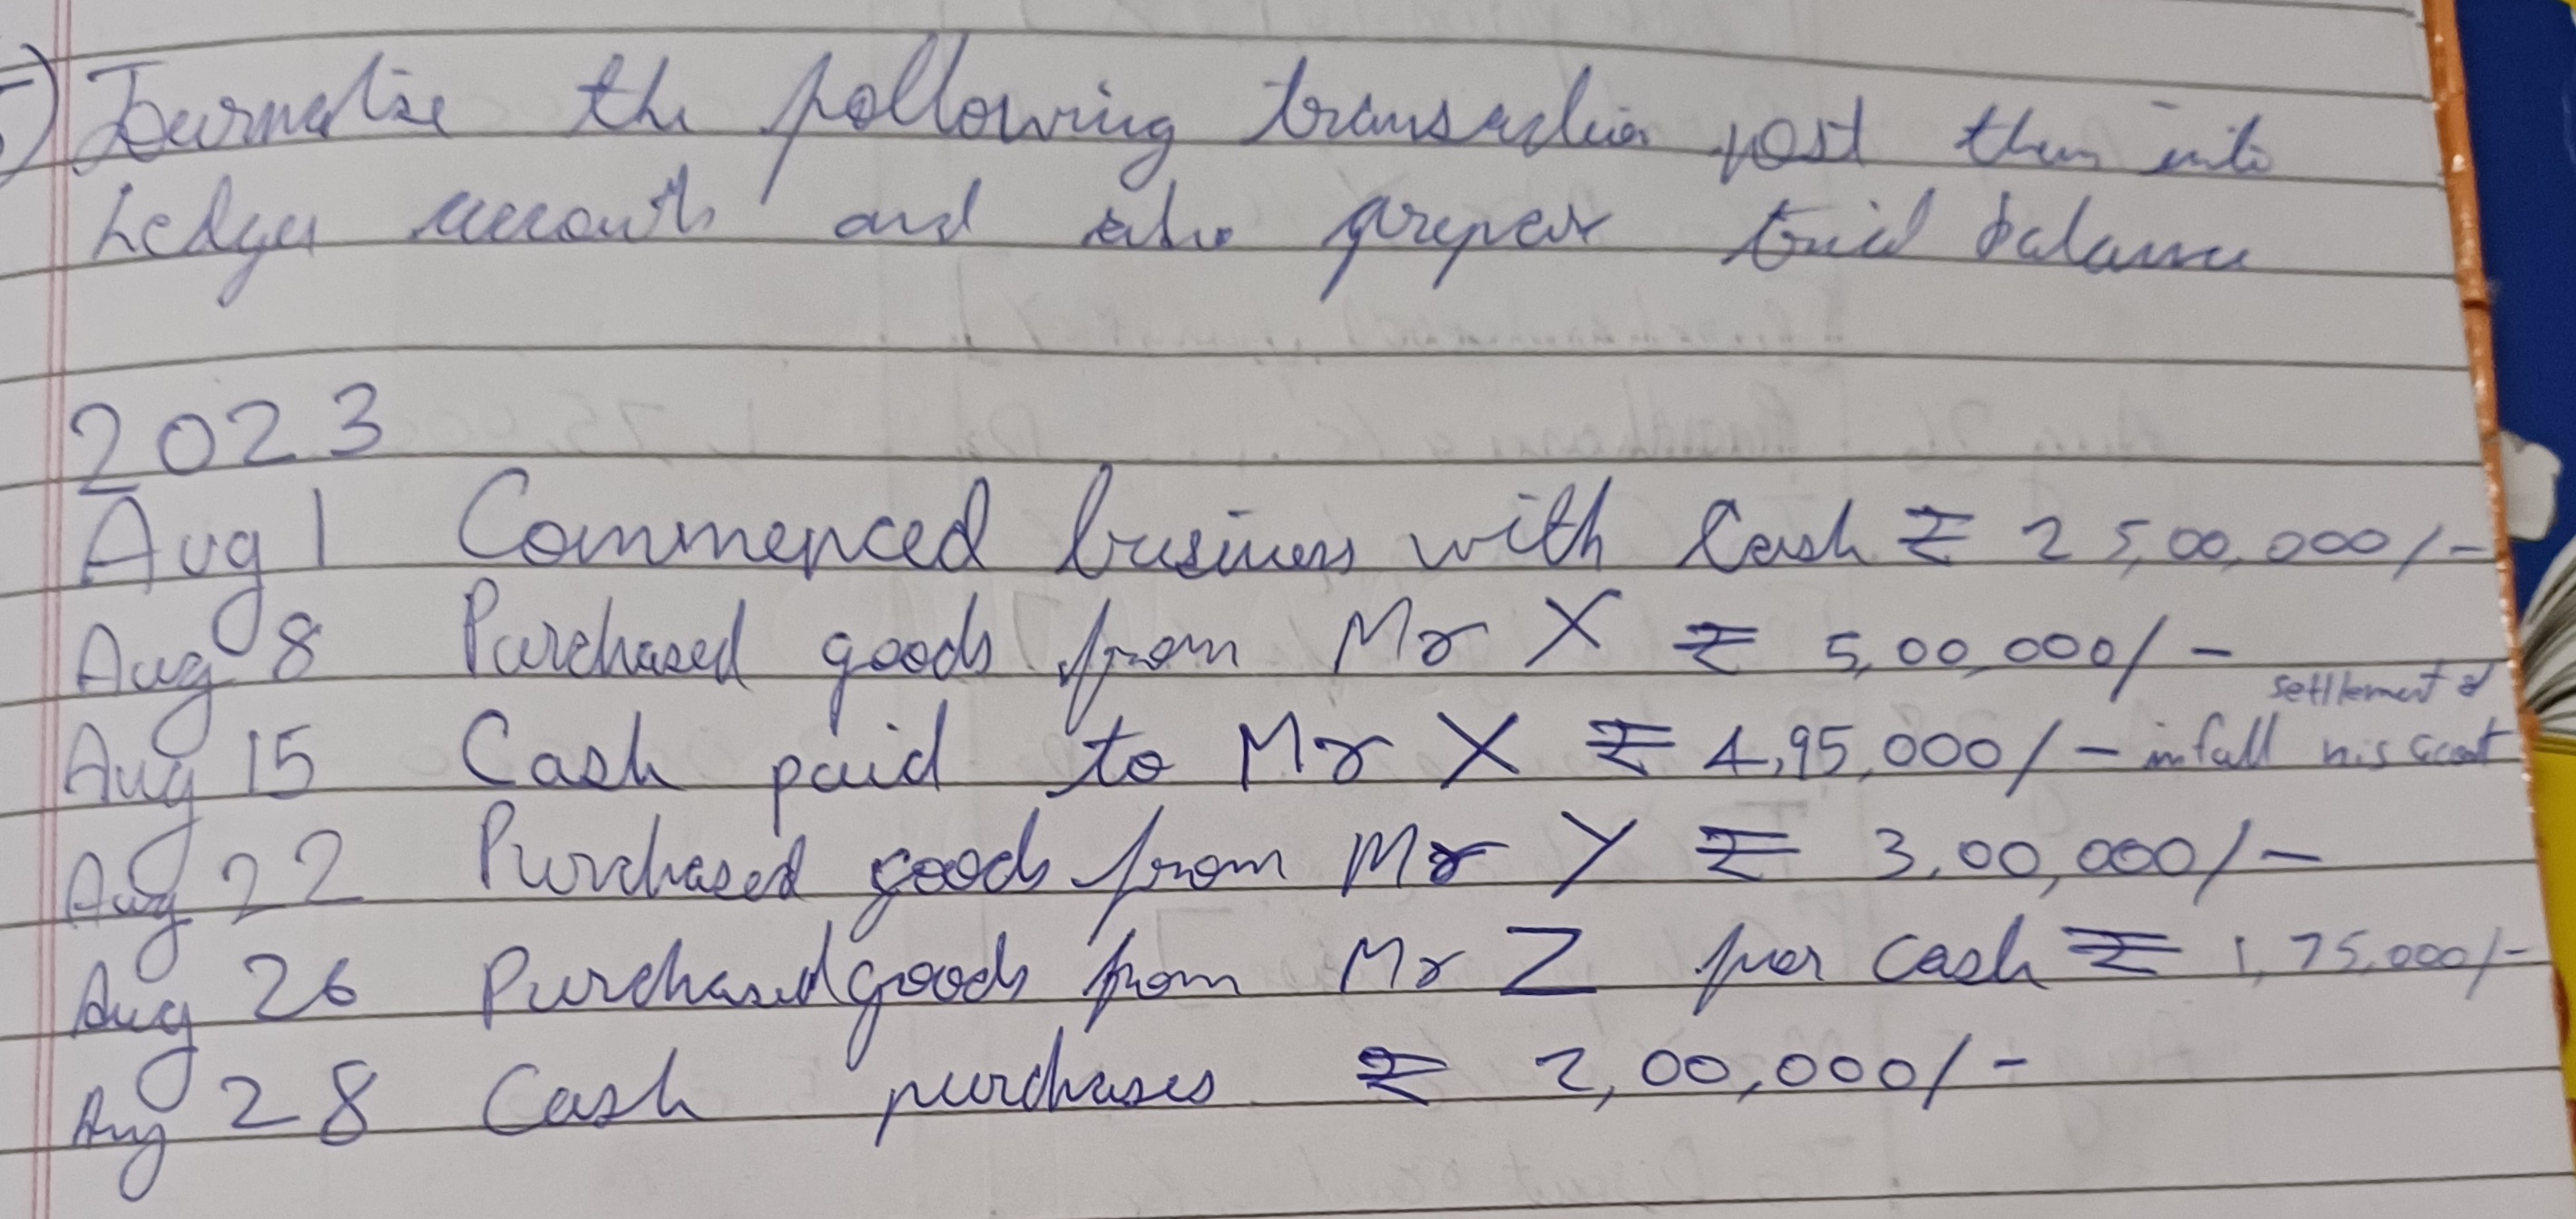 5) Journalise the following transaction post them into
Ledger accounts and also prepare trial balance
2023
Aug 1 Commenced business with Cash ₹ 25,00,000/-
Aug 8 Purchased goods from Mr X ₹ 5,00,000/-
Aug 15 Cash paid to Mr X ₹ 4,95,000/- in full settlement of his account
Aug 22 Purchased goods from Mr Y ₹ 3,00,000/-
Aug 26 Purchased goods from Mr Z for cash ₹ 1,75,000/-
Aug 28 Cash purchases ₹ 2,00,000/-